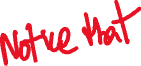 Notice that